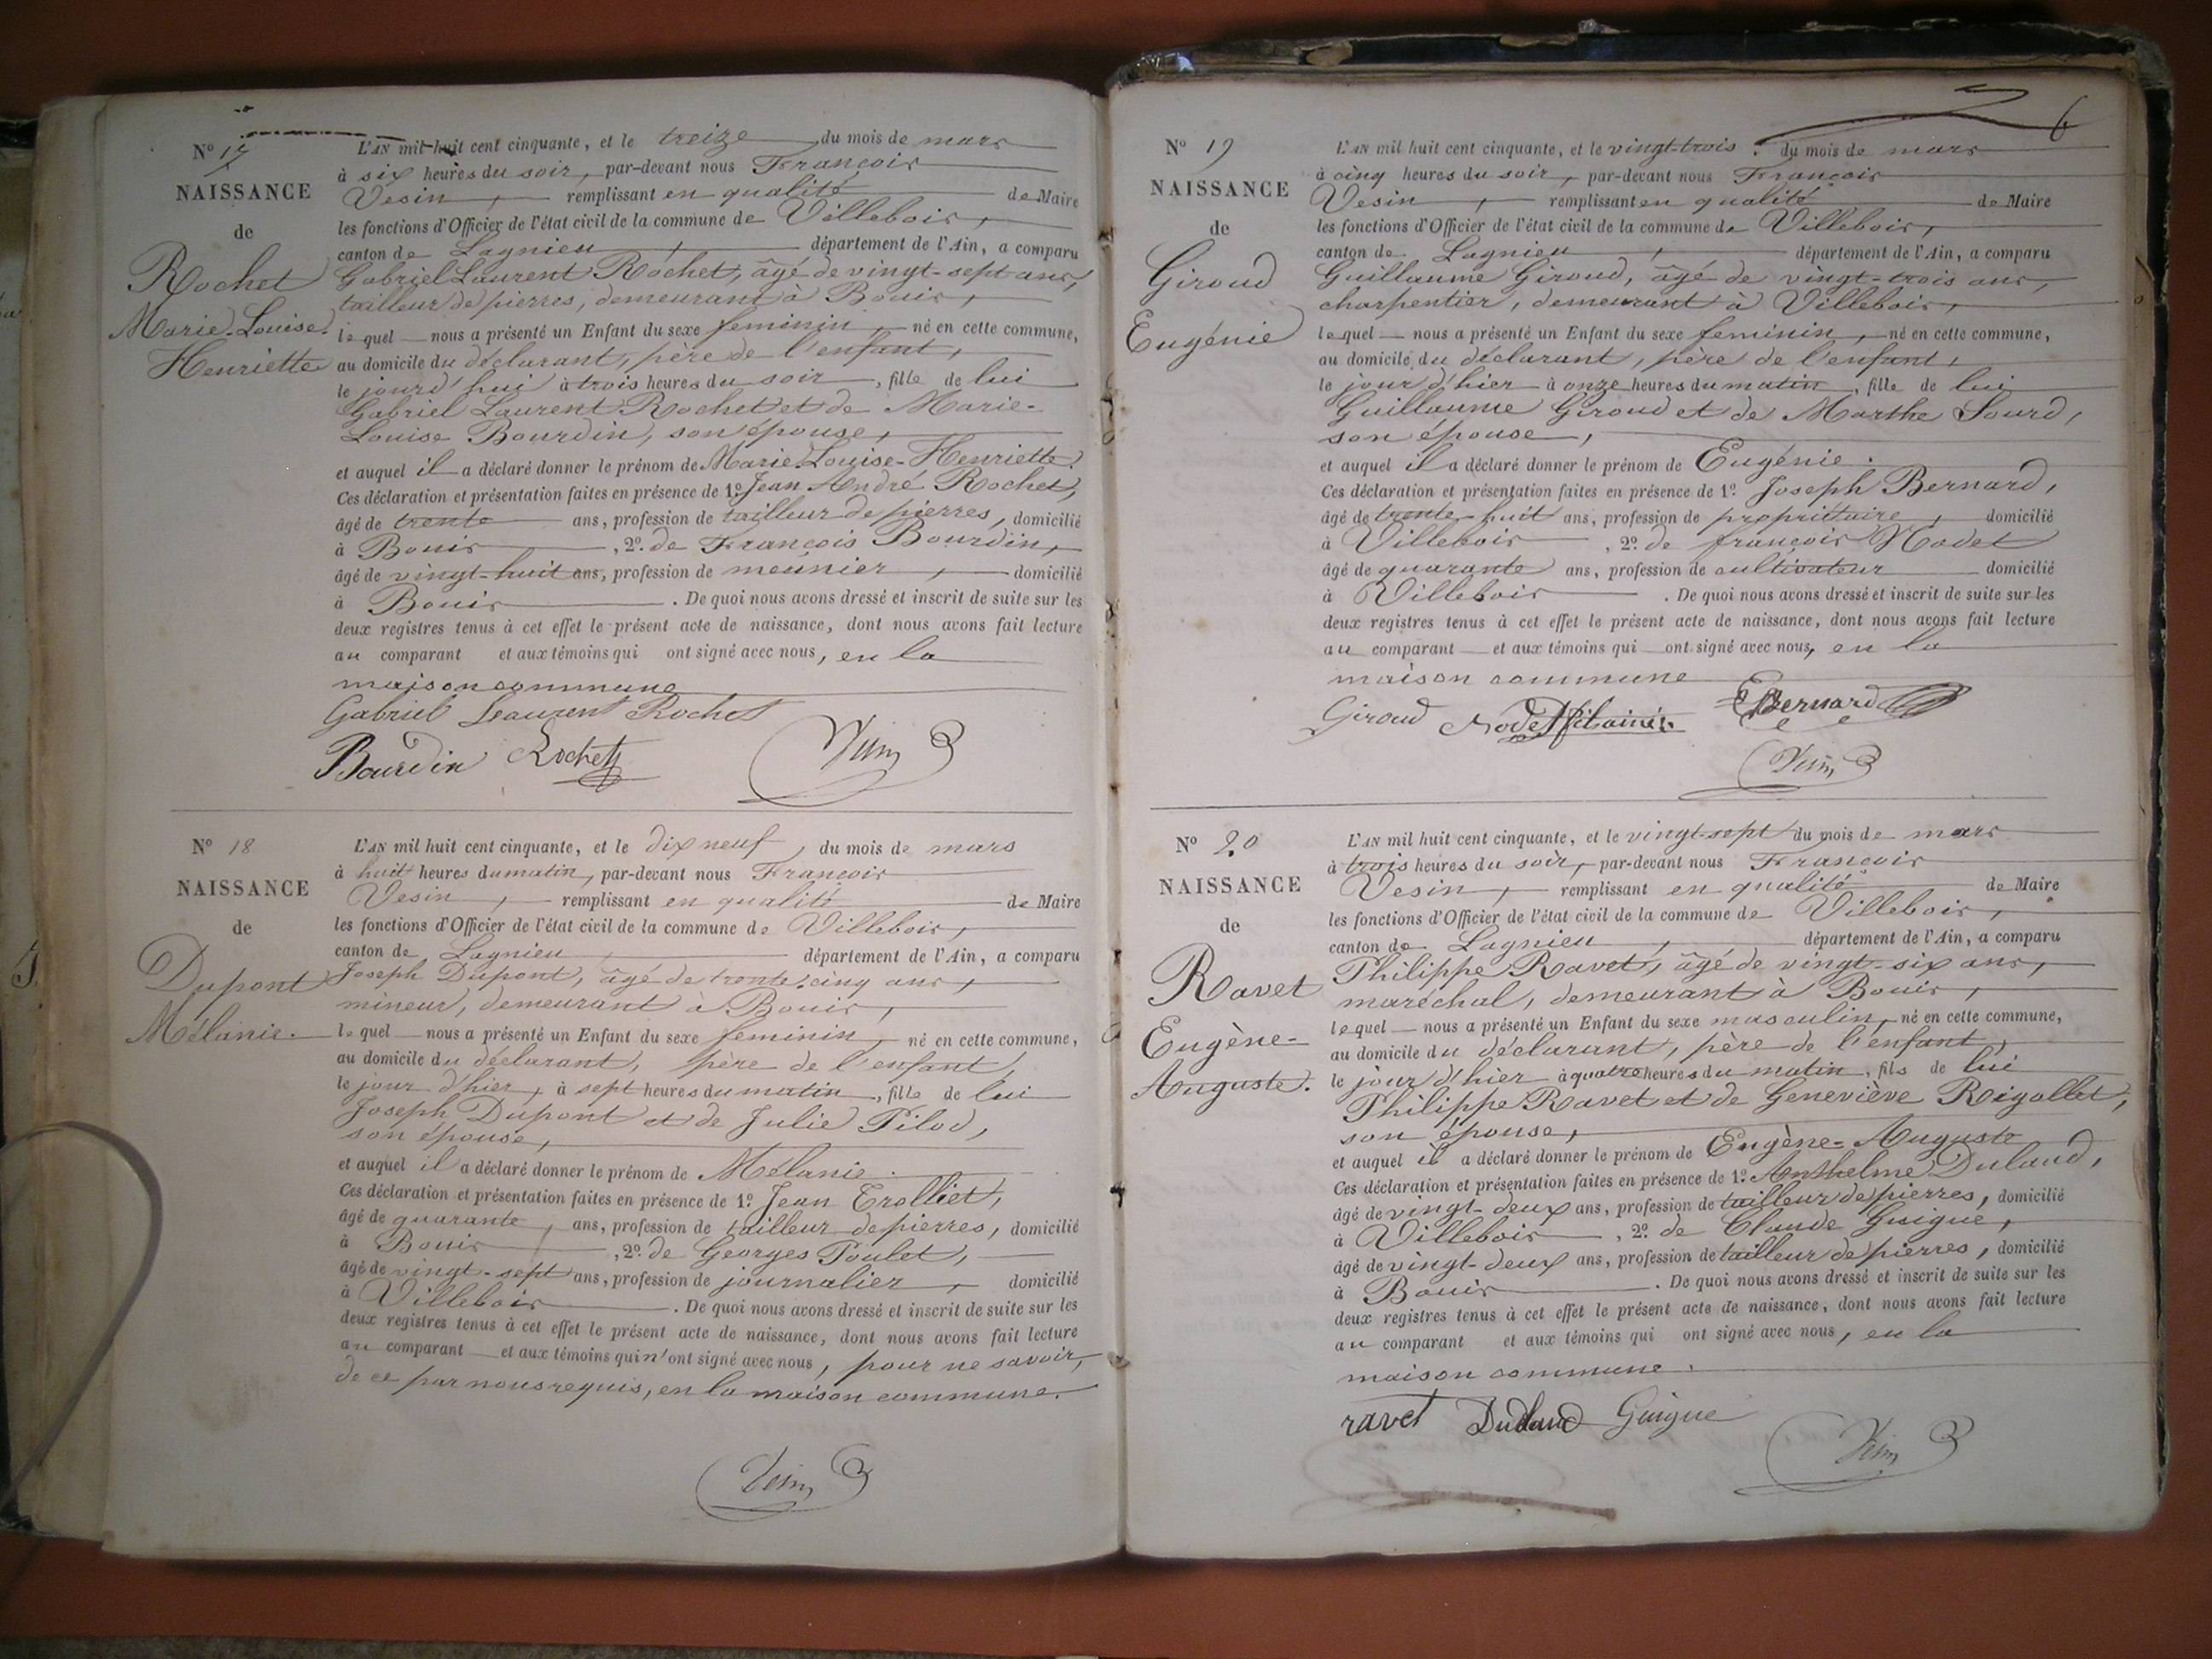 N° 17
NAISSANCE
de
Rochet
Marie-Louise-
Henriette
L'AN mil huit cent cinquante, et le treize du mois de mars
à six heures du soir, par-devant nous François
Vesin, remplissant en qualité de Maire
les fonctions d'Officier de l'état civil de la commune de Villebois,
canton de Lagnieu, département de l'Ain, a comparu
Gabriel Laurent Rochet, âgé de vingt-sept ans,
tailleur de pierres, demeurant à Bouis,
lequel nous a présenté un Enfant du sexe feminin, né en cette commune,
au domicile du déclarant, père de l'enfant,
le jourd'hui à trois heures du soir, fille de lui
Gabriel Laurent Rochet et de Marie-
Louise Bourdin, son épouse,
et auquel il a déclaré donner le prénom de Marie-Louise-Henriette.
Ces déclaration et présentation faites en présence de 1° Jean André Rochet,
âgé de trente ans, profession de tailleur de pierres, domicilié
à Bouis, 2° de François Bourdin,
âgé de vingt-huit ans, profession de meunier, domicilié
à Bouis. De quoi nous avons dressé et inscrit de suite sur les
deux registres tenus à cet effet le présent acte de naissance, dont nous avons fait lecture
au comparant et aux témoins qui ont signé avec nous, en la
maison commune
Gabriel Laurent Rochet
Bourdin Rochet Vesin
N° 18
NAISSANCE
de
Dupont
Mélanie.
L'AN mil huit cent cinquante, et le dix neuf, du mois de mars
à huit heures du matin, par-devant nous François
Vesin, remplissant en qualité de Maire
les fonctions d'Officier de l'état civil de la commune de Villebois,
canton de Lagnieu, département de l'Ain, a comparu
Joseph Dupont, âgé de trente-cinq ans,
mineur, demeurant à Bouis,
lequel nous a présenté un Enfant du sexe feminin, né en cette commune,
au domicile du déclarant, père de l'enfant,
le jour d'hier, à sept heures du matin, fille de lui
Joseph Dupont et de Julie Pilod,
son épouse,
et auquel il a déclaré donner le prénom de Mélanie.
Ces déclaration et présentation faites en présence de 1° Jean Trolliet,
âgé de quarante, ans, profession de tailleur de pierres, domicilié
à Bouis, 2° de Georges Poulet,
âgé de vingt-sept ans, profession de journalier, domicilié
à Villebois. De quoi nous avons dressé et inscrit de suite sur les
deux registres tenus à cet effet le présent acte de naissance, dont nous avons fait lecture
au comparant et aux témoins qui n'ont signé avec nous, pour ne savoir,
de ce par nous requis, en la maison commune.
Vesin
6
N° 19
NAISSANCE
de
Giroud
Eugénie
L'AN mil huit cent cinquante, et le vingt-trois. du mois de mars
à cinq heures du soir, par-devant nous François
Vesin, remplissant en qualité de Maire
les fonctions d'Officier de l'état civil de la commune de Villebois,
canton de Lagnieu, département de l'Ain, a comparu
Guillaume Giroud, âgé de vingt-trois ans,
charpentier, demeurant à Villebois,
lequel nous a présenté un Enfant du sexe feminin, né en cette commune,
au domicile du déclarant, père de l'enfant,
le jour d'hier à onze heures du matin, fille de lui
Guillaume Giroud et de Marthe Lourd,
son épouse,
et auquel il a déclaré donner le prénom de Eugénie.
Ces déclaration et présentation faites en présence de 1° Joseph Bernard,
âgé de trente-huit ans, profession de propriétaire, domicilié
à Villebois, 2° de françois Nodet
âgé de quarante ans, profession de cultivateur domicilié
à Villebois. De quoi nous avons dressé et inscrit de suite sur les
deux registres tenus à cet effet le présent acte de naissance, dont nous avons fait lecture
au comparant et aux témoins qui ont signé avec nous, en la
maison commune
Giroud Nodet Bernard
Vesin
N° 20
NAISSANCE
de
Ravet
Eugène-
Auguste.
L'AN mil huit cent cinquante, et le vingt-sept du mois de mars
à trois heures du soir, par-devant nous François
Vesin, remplissant en qualité de Maire
les fonctions d'Officier de l'état civil de la commune de Villebois,
canton de Lagnieu, département de l'Ain, a comparu
Philippe Ravet, âgé de vingt-six ans,
maréchal, demeurant à Bouis,
lequel nous a présenté un Enfant du sexe masculin, né en cette commune,
au domicile du déclarant, père de l'enfant
le jour d'hier à quatre heures du matin, fils de lui
Philippe Ravet et de Geneviève Rigollet,
son épouse,
et auquel il a déclaré donner le prénom de Eugène-Auguste
Ces déclaration et présentation faites en présence de 1° Anthelme Dulaud,
âgé de vingt-deux ans, profession de tailleur de pierres, domicilié
à Villebois, 2° de Claude Guigue,
âgé de vingt-deux ans, profession de tailleur de pierres, domicilié
à Bouis. De quoi nous avons dressé et inscrit de suite sur les
deux registres tenus à cet effet le présent acte de naissance, dont nous avons fait lecture
au comparant et aux témoins qui ont signé avec nous, en la
maison commune.
ravet Dulaud Guigue
Vesin